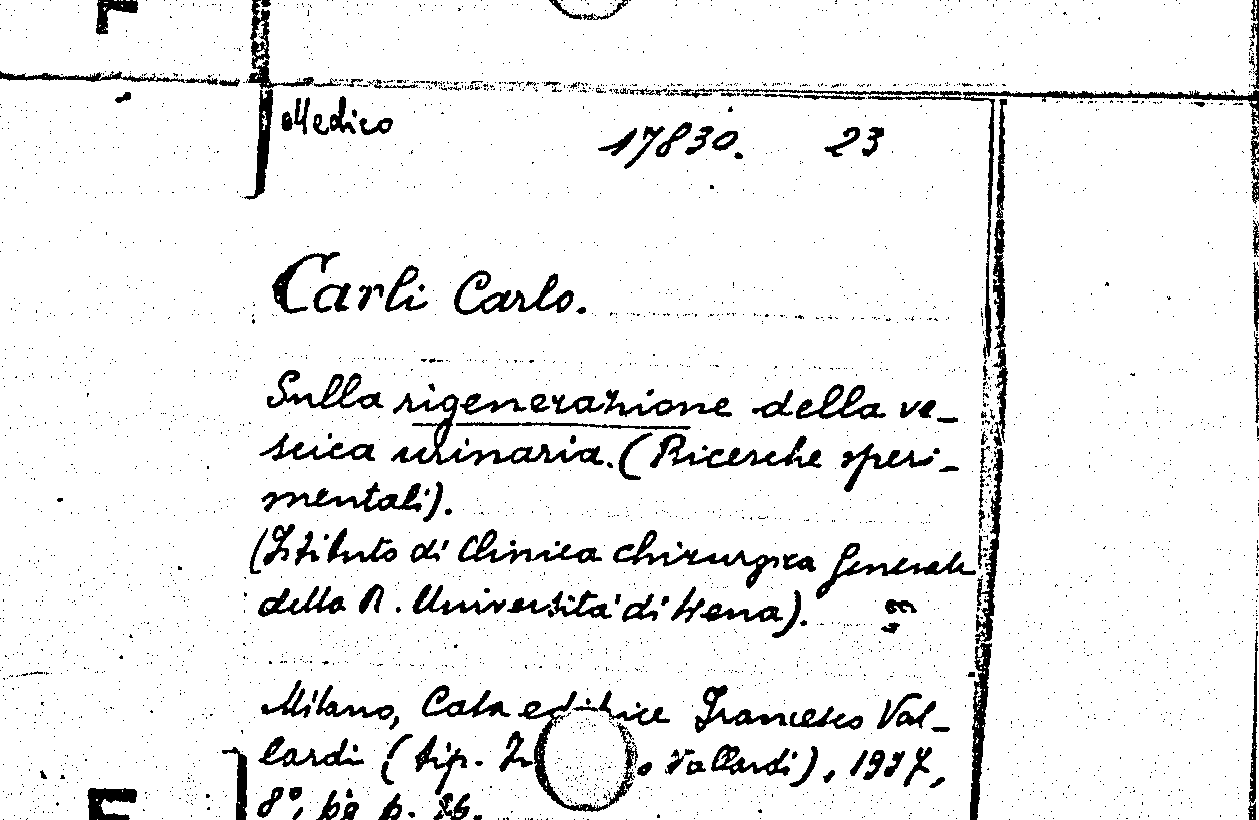 Medico 17830. 23
Carli Carlo.
Sulla rigenerazione della ve-
scica urinaria. (Ricerche speri-
mentali).
(Istituto di Clinica chirurgica Generale
della R. Università di Siena).
Milano, Casa editrice Francesco Val-
lardi (tip. Vallardi), 1937,
8°, p. 26.